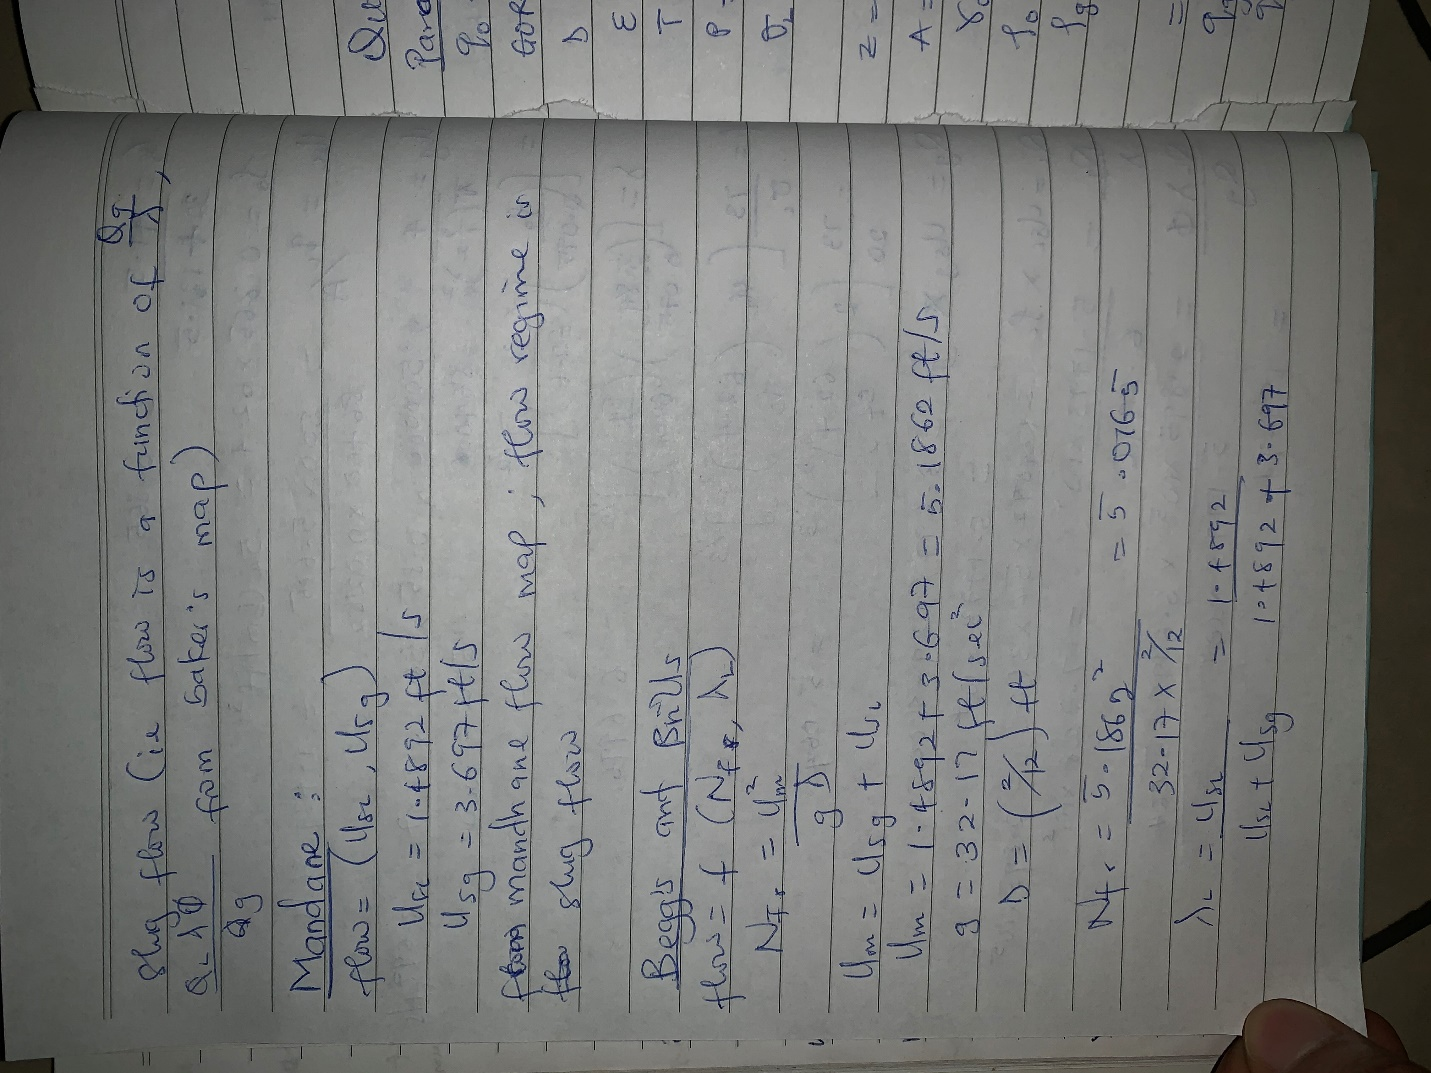 Slug flow (ie flow is a function of Qg/λ,
QLλφ/Qg from baker's map)
Mandane:
flow = (USL, USg)
USL = 1.4892 ft/s
USg = 3.697 ft/s
from mandhane flow map; flow regime is
slug flow
Beggs and Brills
flow = f (NFr, λL)
NFr = Um²/gD
Um = USg + USL
Um = 1.4892 + 3.697 = 5.1862 ft/s
g = 32.17 ft/sec²
D = (2/12) ft
NFr = 5.1862²/32.17 x 2/12 = 5.0165
λL = USL/USL + USg = 1.4892/1.4892 + 3.697
Qu
Para
qo
GOR
D
E
T
P =
σL
Z =
A =
γo
ρo
ρg
=